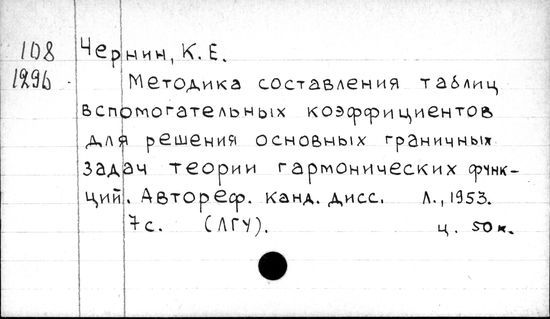 108 Чернин, К.Е.
1296 Методика составления таблиц
вспомогательных коэффициентов
для решения основных граничных
задач теории гармонических функ-
ций. Автореф. канд. дисс. Л., 1953.
7 с. (ЛГУ). ц. 50 к.